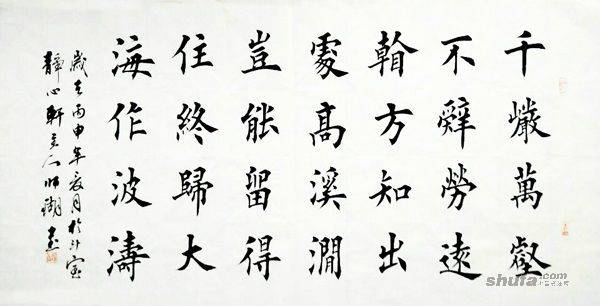 千巗萬壑
不辭勞遠
方知出
處高溪澗
豈能留得
住終歸大
海作波濤
歲在丙申年夏月於
靜心軒主人書
shufa.com